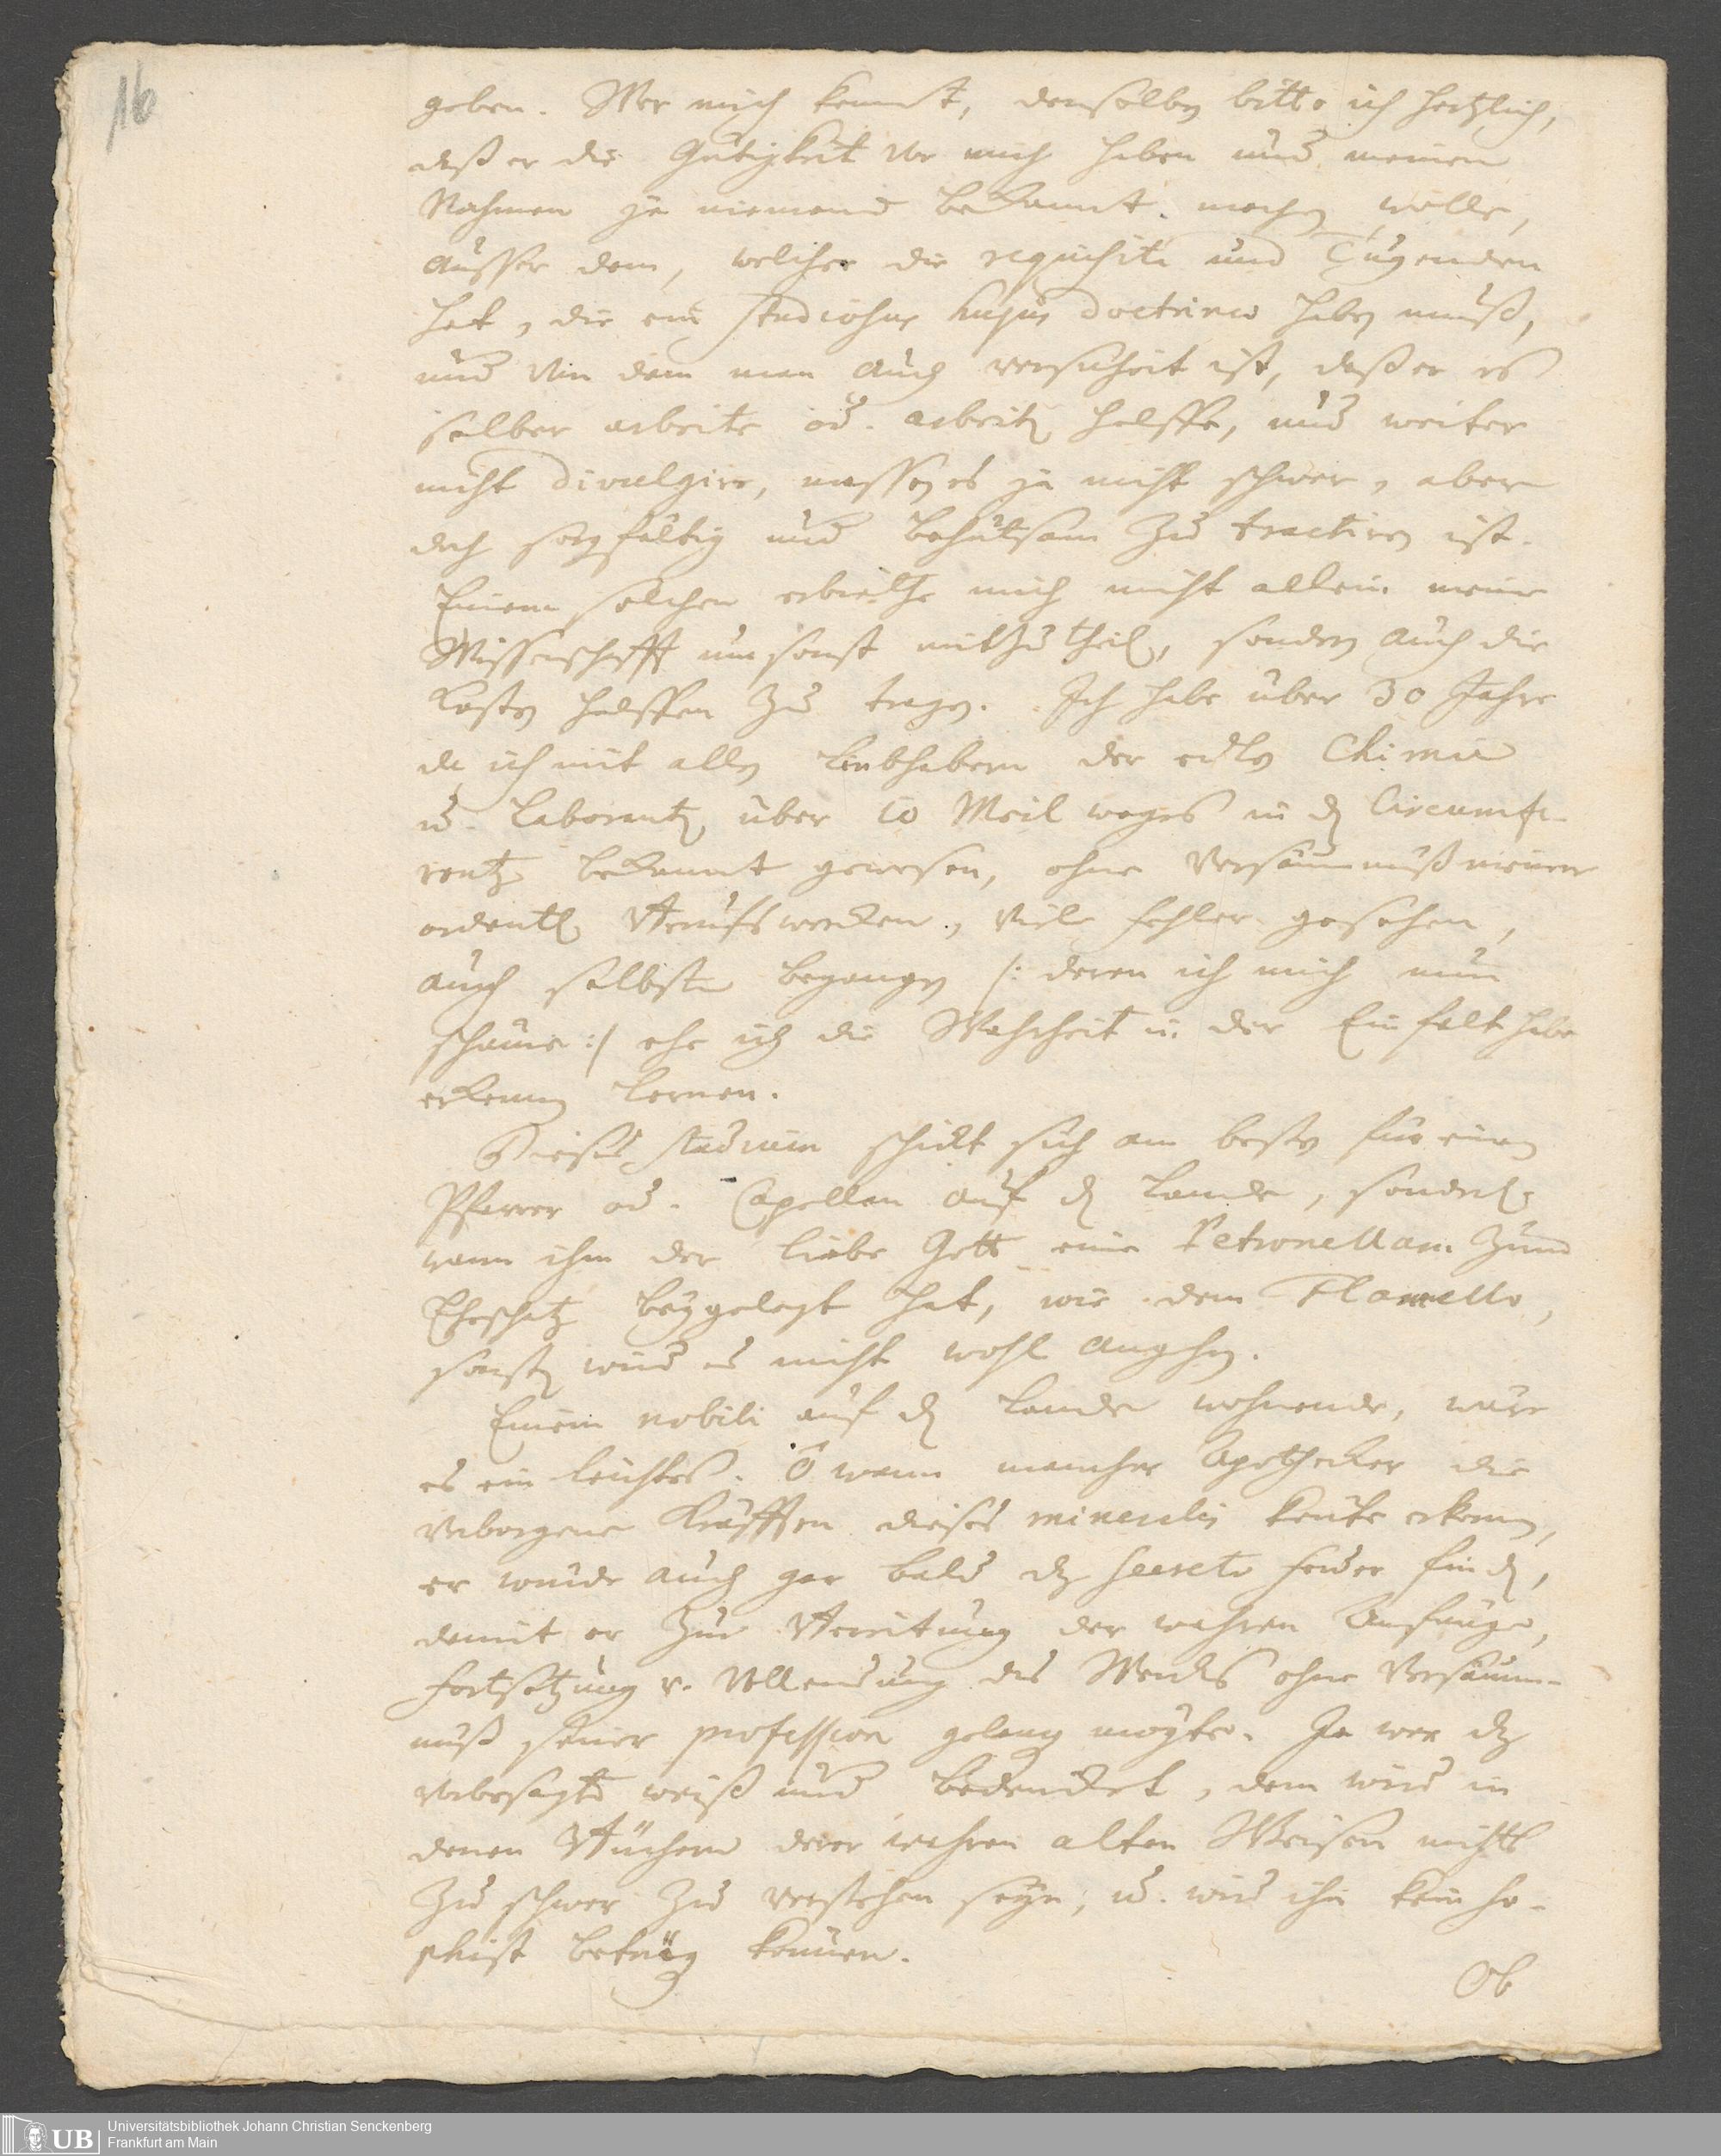 16
geben. Wer mich kennet, denselben bitte ich hertzlich,
daß er die Gütigkeit vor mich haben und meinen
Nahmen ja niemand bekannt machen wolle,
ausser dem, welcher die requisita und Tugenden
hat, die ein studiosus hujus doctrinae haben muß,
und von dem man auch versichert ist, daß er es
selber arbeite od. arbeiten helffe, und weiter
nicht divulgire, massen es ja nicht schwer, aber
doch sorgfältig und behutsam zu tractiren ist.
Einem solchen erbiethe mich nicht allein meine
Wissenschafft umsonst mitzutheilen, sondern auch die
Kosten helffen zu tragen. Ich habe über 30 Jahre
da ich mit allen Liebhabern der edlen Chimie
u. Laboranten über 10 Meil weges in der Circumfe-
rentz bekannt gewesen, ohne Versäumnuß meiner
ordentl. Berufswercken, viele fehler gesehen,
auch selbsten begangen /: deren ich mich nun
schäme :/ ehe ich die Wahrheit in der Einfalt habe
erkennen lernen.
Dieses studium schickt sich am besten für einen
Pfarrer od. Capellan auf dem Lande, sonderl.
wann ihm der liebe Gott eine Petronellam zum
Eheschatz beygelegt hat, wie dem Flamello,
sonsten wird es nicht wohl angehen.
Einem nobili auf dem Lande wohnende, wäre
es ein leichtes. O wann mancher Apothecker die
verborgene Kräfften dieses mineralis könte erkennen,
er würde auch gar bald das secrete feuer finden,
damit er zur Bereitung der wahren Anfänge,
fortsetzung u. Vollendung des Wercks ohne Versäum-
nuß seiner profession gelangen mögte. Ja wer das
vorbesagte weiß und bedencket, dem wird in
denen Büchern derer wahren alten Weisen nichts
zu schwer zu verstehen seyn, u. wird ihn kein so-
phist betrügen können.
Ob
UB
Universitätsbibliothek Johann Christian Senckenberg
Frankfurt am Main